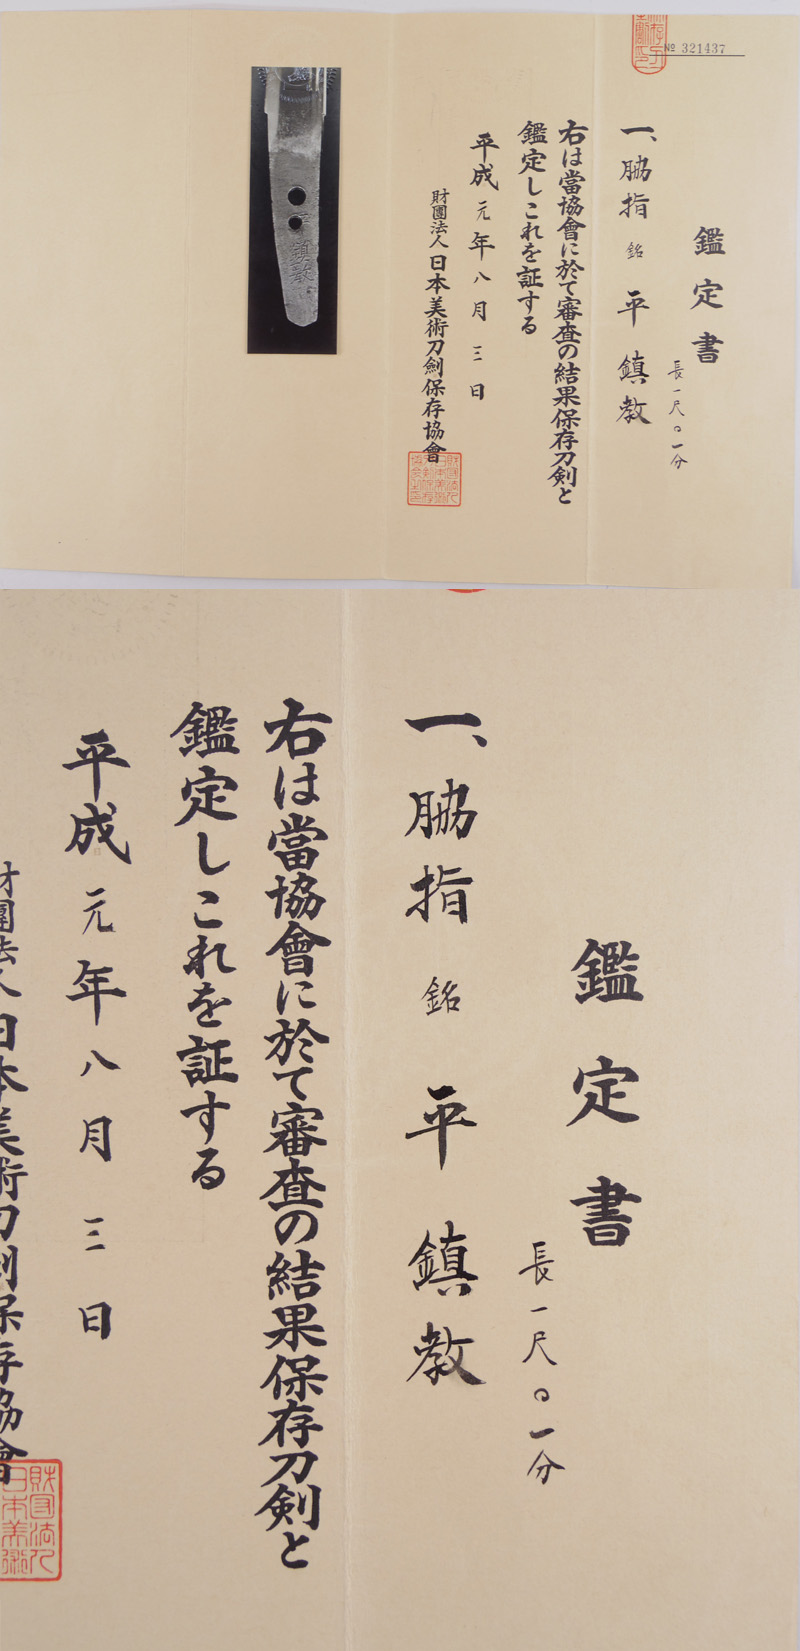 № 321437
鑑定書
長一尺〇一分
一、脇指 銘 平鎮教
右は當協會に於て審査の結果保存刀剣と
鑑定しこれを証する
平成元年八月三日
財團法人日本美術刀劍保存協會
鎮教
鑑定書
長一尺〇一分
一、脇指 銘 平鎮教
右は當協會に於て審査の結果保存刀剣と
鑑定しこれを証する
平成元年八月三日
財團法人日本美術刀劍保存協會
財団法人
日本美術